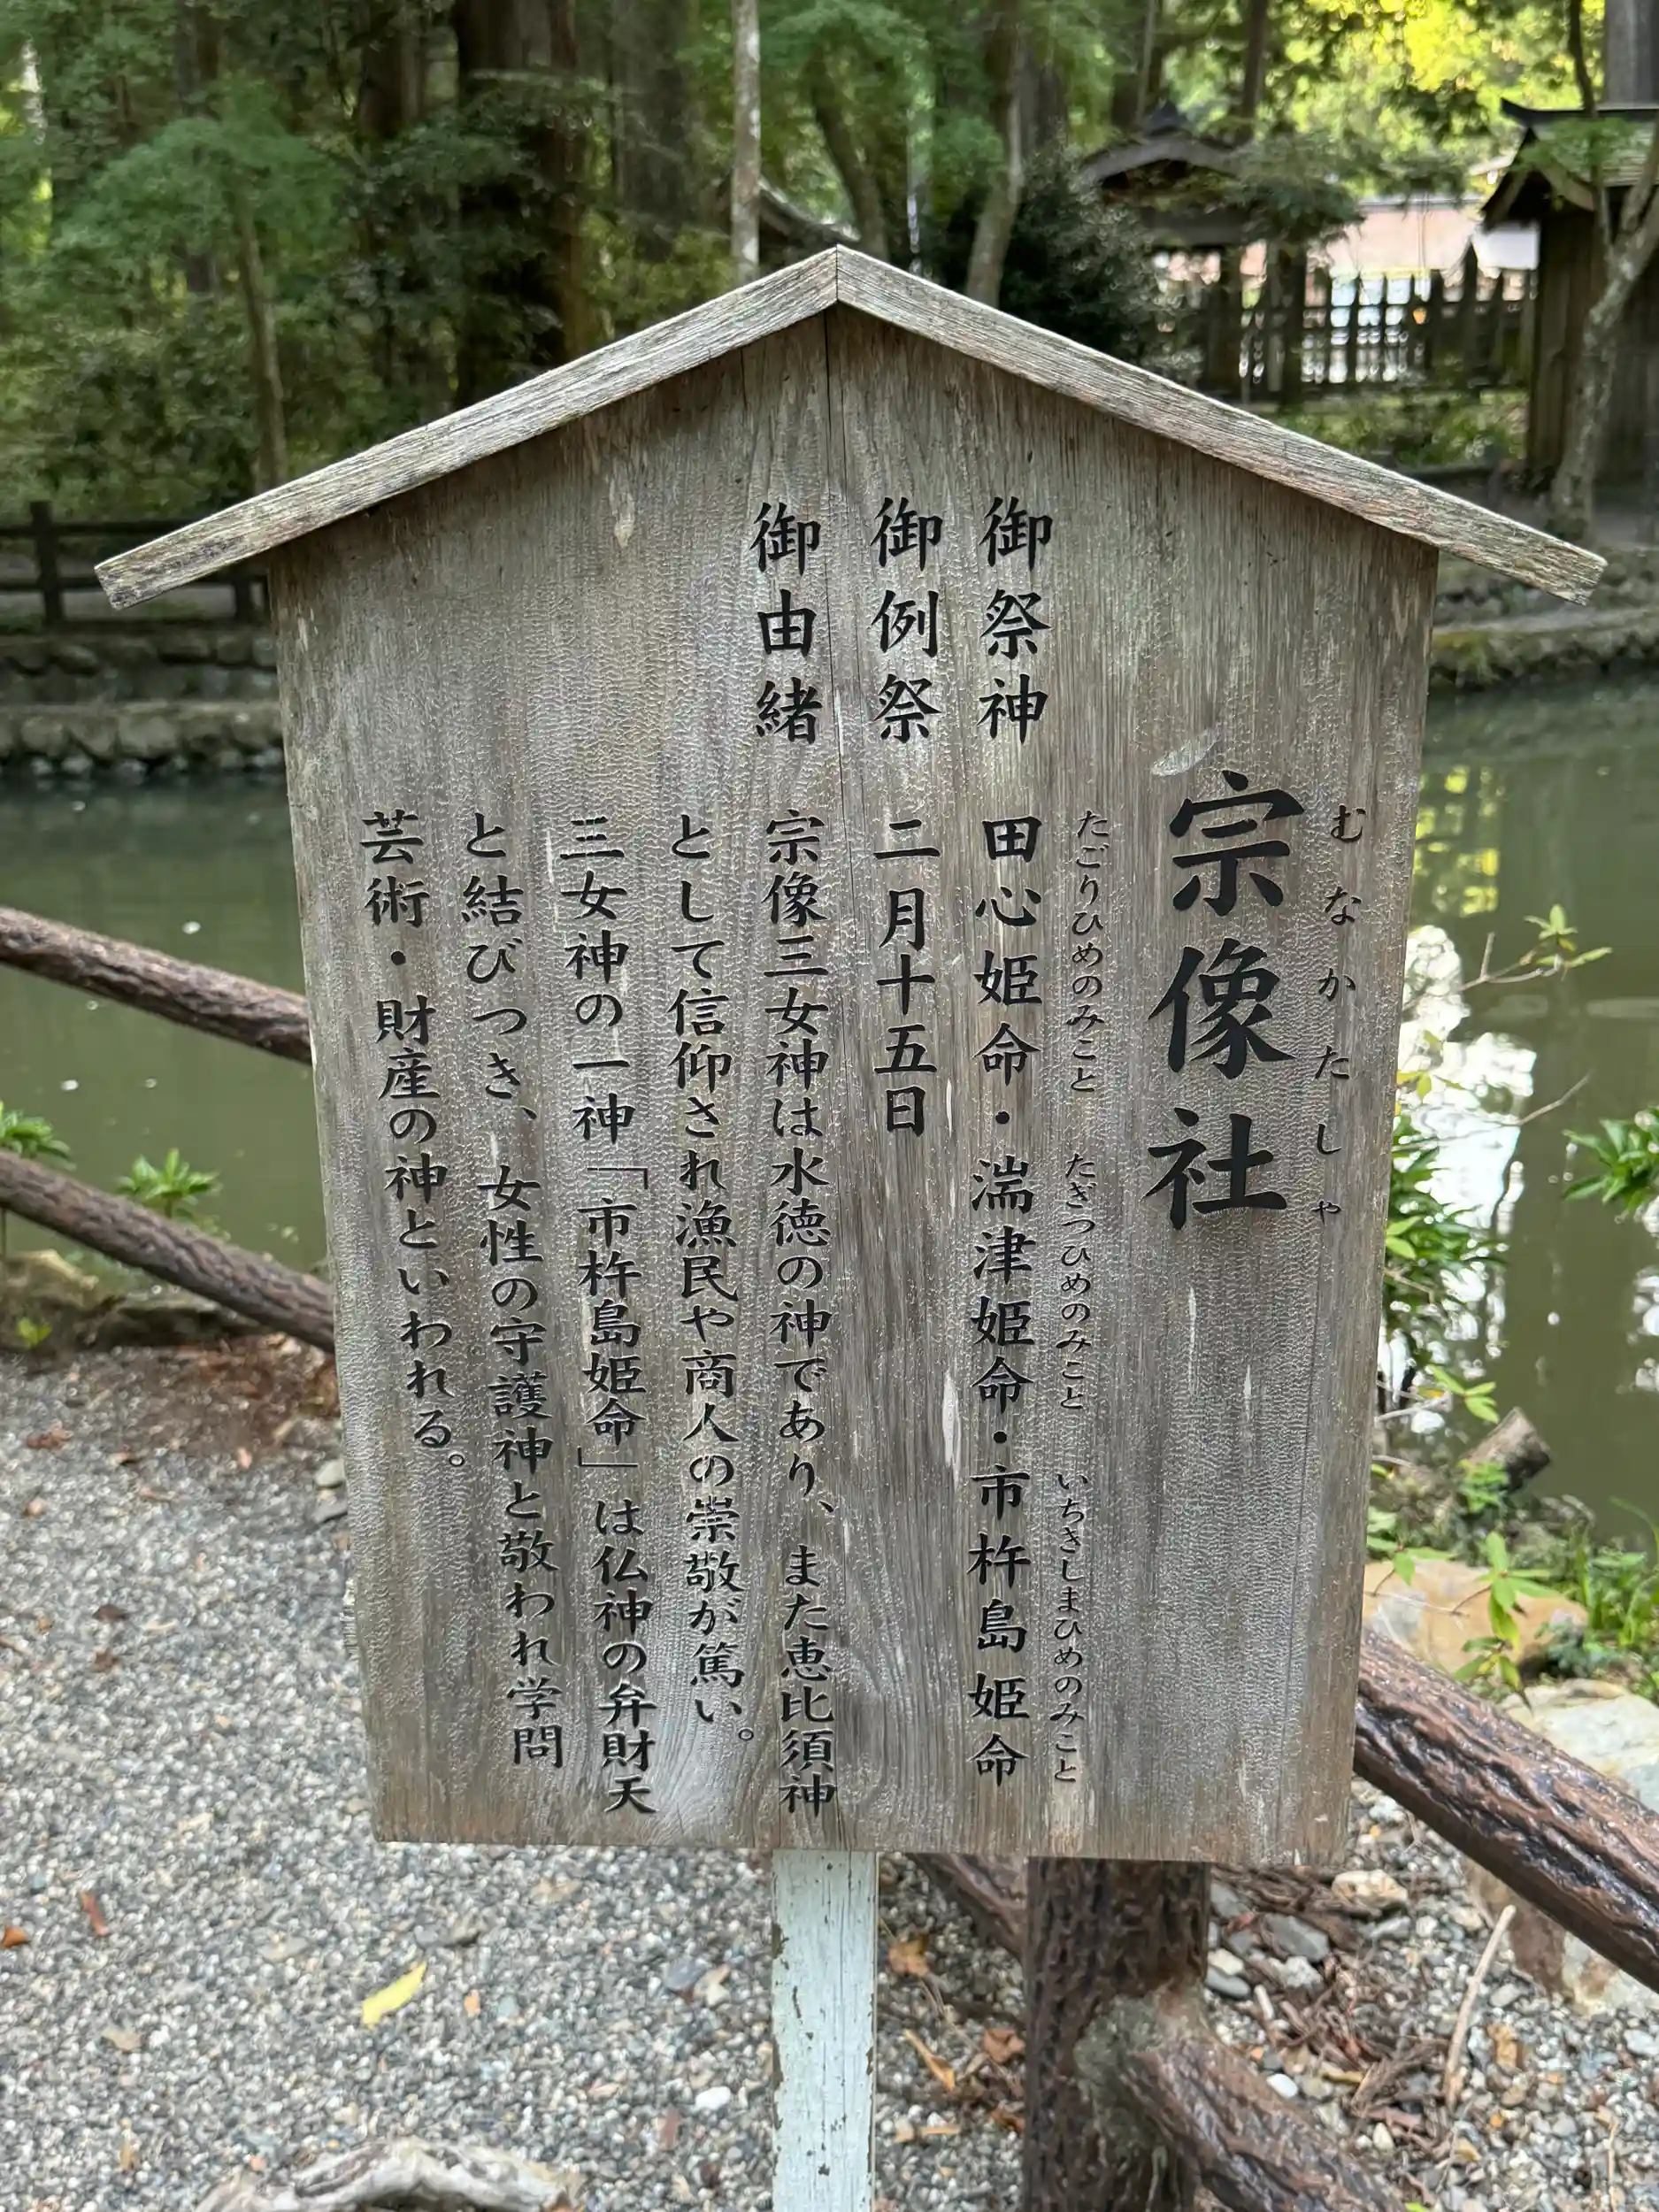 むなかたしゃ
宗像社
たごりひめのみこと たぎつひめのみこと いちきしまひめのみこと
御祭神 田心姫命・湍津姫命・市杵島姫命
御例祭 二月十五日
御由緒 宗像三女神は水徳の神であり、また恵比須神
として信仰され漁民や商人の崇敬が篤い。
三女神の一神「市杵島姫命」は仏神の弁財天
と結びつき、女性の守護神と敬われ学問
芸術・財産の神といわれる。